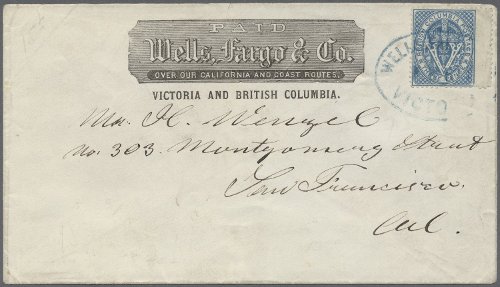 PAID
Wells, Fargo & Co.
OVER OUR CALIFORNIA AND COAST ROUTES.
VICTORIA AND BRITISH COLUMBIA.
WELLS
VICTO
Mr. H. Wenzel
No. 303 Montgomery Street
San Francisco.
Cal.